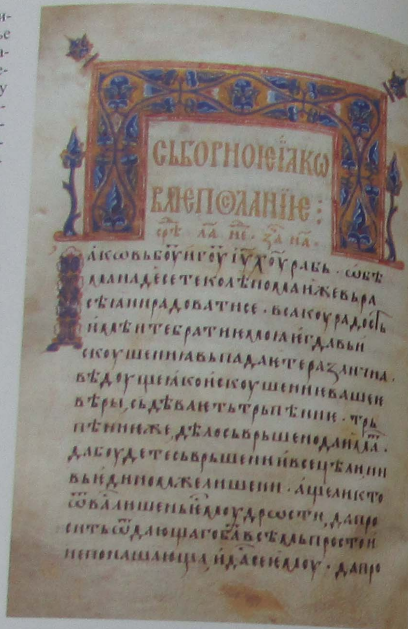 и-
ье
а-
е-
у
СЬБОРНОѤ ІАКѠ
ВЛІЕ ПОСЛАНІИЕ :
ꙗковь боу҃ и гоу҃ іу҃ хоу҃ рабь · ѡбѣ
манадесете колѣномаиже вьра
сѣании радоватисе · всакоу радость
имѣите братиѥ моꙗ ѥгда вьи
скоушениꙗ выпадаѥте различна ·
вѣдоуще ꙗко искоушениѥ вашеи
вѣры, сьдѣваѥть трьпѣниѥ · трь
пѣниѥ же, дѣло сьврьшено да има ·
да боудете сьврьшени и всецѣли ни
вь ѥдином же лишени · аще ли кто
ѿ ва лишень ѥ моудрости, да про
сить ѿ дающаго ба҃ всѣмь простои
не поношающа, и дасе ѥмоу · да про